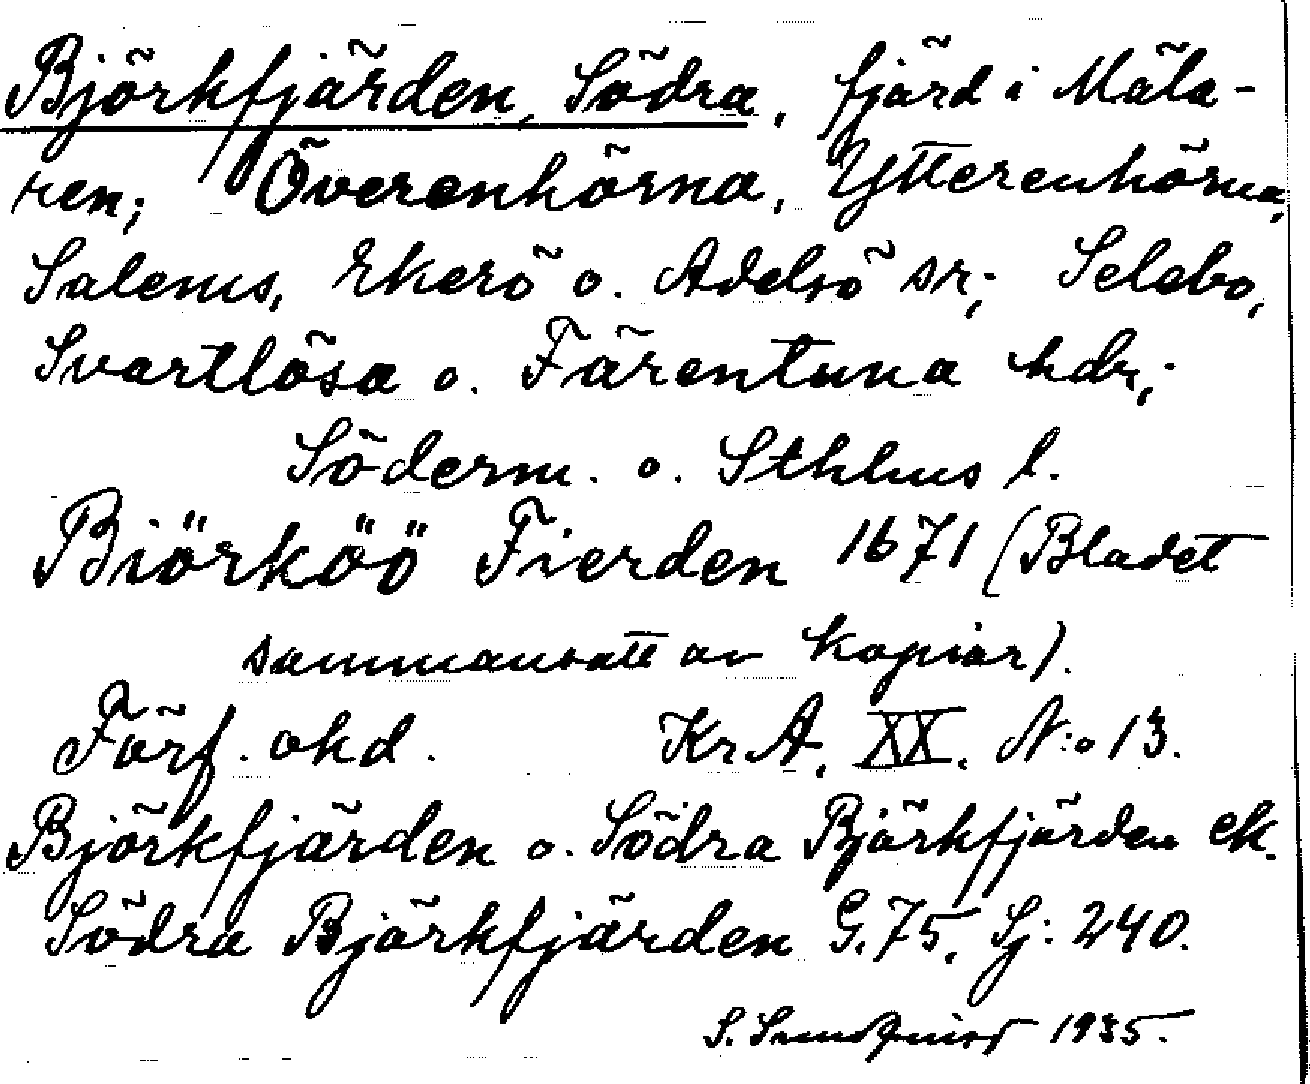 Björkfjärden, Södra, fjärd i Mäla-
ren; Överenhörna, Ytterenhörna,
Salems, Ekerö o. Adelsö sr; Selebo,
Svartlösa o. Färentuna hdr;
Söderm. o. Sthlms l.
Biörköö Fierden 1671 (Bladet
sammansatt av kopior).
Förf. okd. Kr.A. XX. N:o 13.
Björkfjärden o. Södra Björkfjärden ek.
Södra Björkfjärden G.75, Sj: 240.
S. Sundquist 1935.